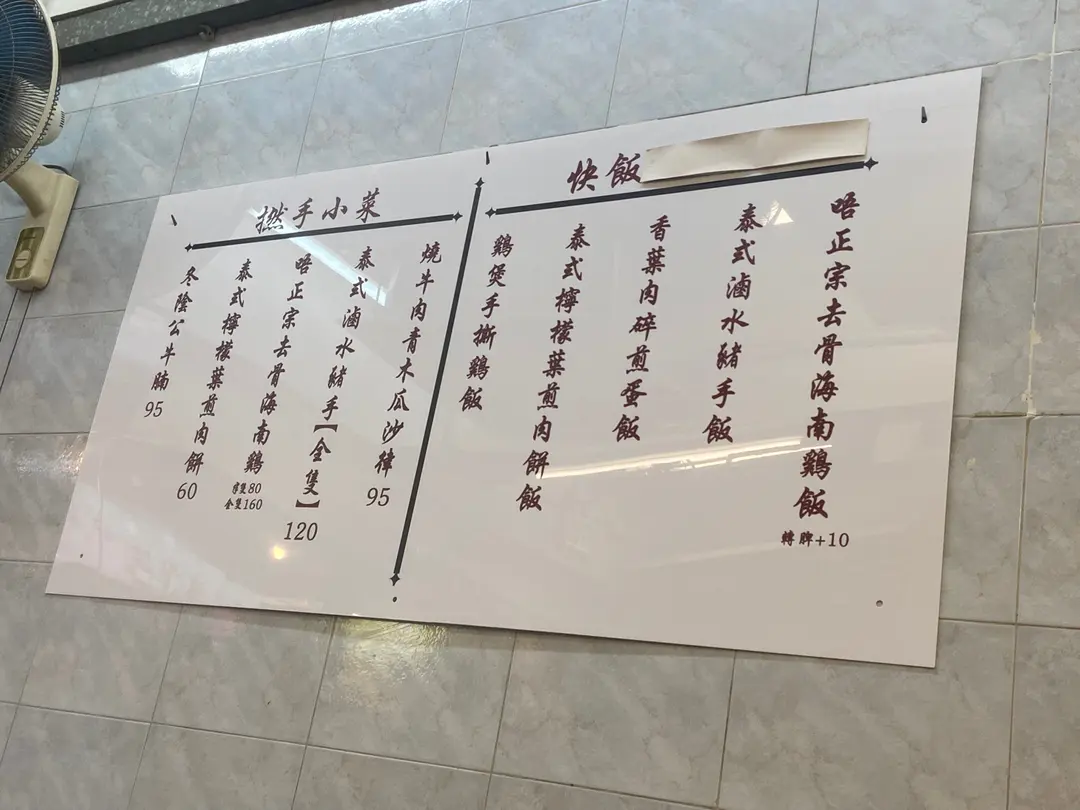 快飯
唔正宗去骨海南鷄飯
轉脾+10
泰式滷水豬手飯
香葉肉碎煎蛋飯
泰式檸檬葉煎肉餅飯
鷄煲手撕鷄飯
撚手小菜
燒牛肉青木瓜沙律
95
泰式滷水豬手【全隻】
120
唔正宗去骨海南鷄
半隻80
全隻160
泰式檸檬葉煎肉餅
60
冬陰公牛腩
95